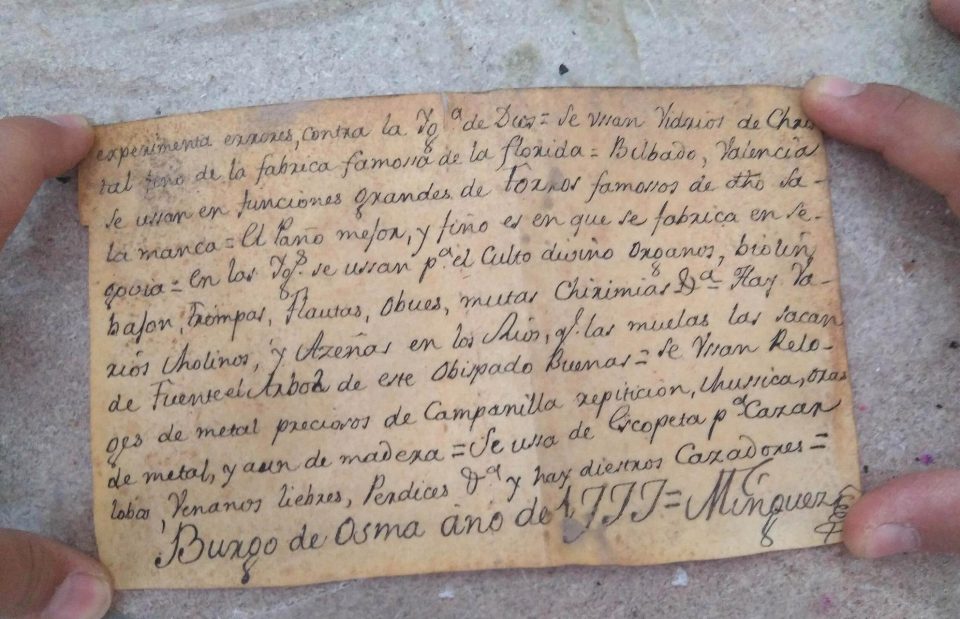 experimenta errores, contra la Yg.ª de Dios = Se Vsan Vidrios de Chris
tal fino de la fabrica famosa de la florida = Bilbado, Valencia
Se ussan en funciones grandes de Torros famossos de dho Sa-
la manca = El Paño mejor, y fino es en que se fabrica en Se-
govia = En las Ygs. se ussan p.ª el Culto divino Organos, biolin
bajon, trompas, Flautas, Obues, mutas Chirimias &.ª = Hay Va-
rios Molinos, y Azeñas en los Rios, q.e las muelas las sacan
de Fuente el Arbol de este Obispado Buenas = Se Vssan Relo-
ges de metal preciosos de Campanilla repiticion, Mussica, otras
de metal, y aun de madera = Se ussa de Escopeta p.ª Cazar
lobos, Venanos liebres, Perdices &.ª y hay diestros Cazadores =
Burgo de Osma año de 1777 = Minguez